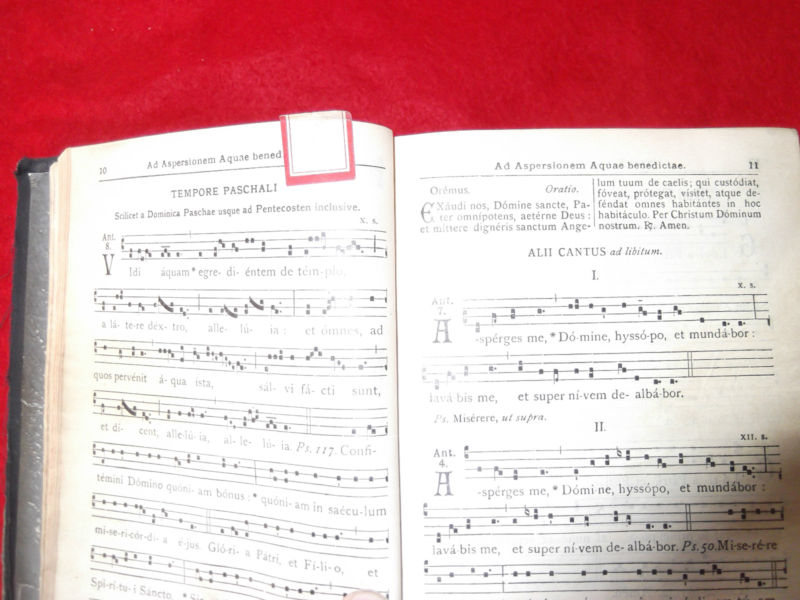 10
Ad Aspersionem Aquae bened
TEMPORE PASCHALI
Scilicet a Dominica Paschae usque ad Pentecosten inclusive.
X. s.
Ant.
8.
V
Idi áquam * egre- di- éntem de témplo,
a lá- te-re déx- tro, alle- lú- ia : et ómnes, ad
quos pervénit á- qua ista, sál- vi fá- cti sunt,
et dí- cent, alle-lú- ia, al- le- lú- ia. Ps. 117. Confi-
témini Dómino quóni- am bónus : * quóni- am in saécu-lum
mi-se-ri-cór-di- a e-jus. Gló-ri- a Pátri, et Fí-li-o, et
Spi-rí-tu-i Sáncto.
Ad Aspersionem Aquae benedictae.
11
Orémus. Oratio.
EXáudi nos, Dómine sancte, Pa-
ter omnípotens, aetérne Deus :
et míttere dignéris sanctum Ange-
lum tuum de caelis; qui custódiat,
fóveat, prótegat, vísitet, atque de-
féndat omnes habitántes in hoc
habitáculo. Per Christum Dóminum
nostrum. ℟. Amen.
ALII CANTUS ad libitum.
I.
X. s.
Ant.
7.
A
-spérges me, * Dó-mine, hyssó-po, et mundá-bor :
lavá-bis me, et super ní-vem de- albá-bor.
Ps. Miserére, ut supra.
II.
XII. s.
Ant.
4.
A
-spérges me, * Dómi-ne, hyssópo, et mundábor :
lavá-bis me, et super ní-vem de- albá-bor. Ps. 50. Mi-se-ré-re